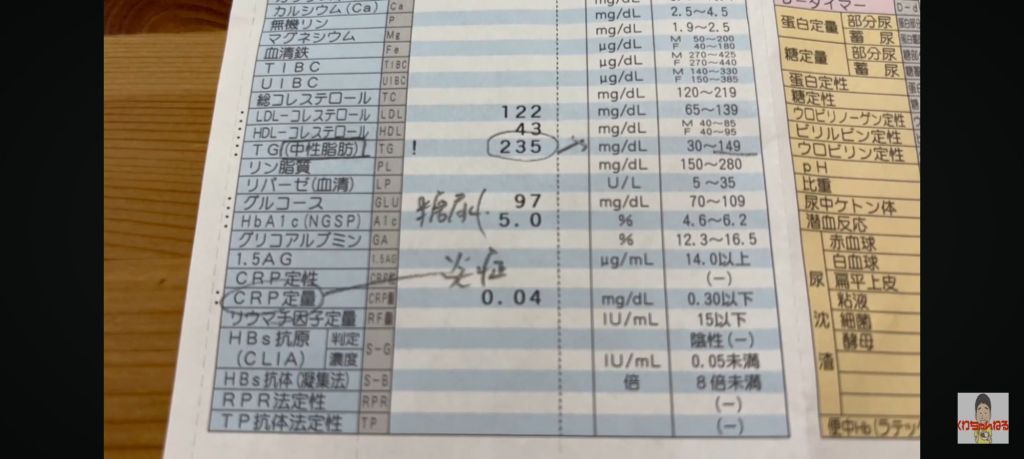 カルシウム(Ca) Ca mg/dL 2.5～4.5
無機リン P mg/dL 1.9～2.5
マグネシウム Mg μg/dL M 50～200 F 40～180
血清鉄 Fe μg/dL M 270～425 F 270～440
TIBC TIBC μg/dL M 140～330 F 150～385
UIBC UIBC
総コレステロール TC mg/dL 120～219
LDL-コレステロール LDL 122 mg/dL 65～139
HDL-コレステロール HDL 43 mg/dL M 40～85 F 40～95
TG(中性脂肪) TG ! 235 mg/dL 30～149
リン脂質 PL mg/dL 150～280
リパーゼ(血清) LP U/L 5～35
グルコース GLU 97 mg/dL 70～109
糖尿
HbA1c(NGSP) A1c 5.0 % 4.6～6.2
グリコアルブミン GA % 12.3～16.5
1.5AG 1.5AG μg/mL 14.0以上
炎症
CRP定性 (-)
CRP定量 CRP量 0.04 mg/dL 0.30以下
リウマチ因子定量 RF量 IU/mL 15以下
HBs抗原 判定 S-G 陰性(-)
(CLIA) 濃度 IU/mL 0.05未満
HBs抗体(凝集法) S-B 倍 8倍未満
RPR法定性 RPR (-)
TP抗体法定性 TP (-)
蛋白定量 部分尿
蓄尿
糖定量 部分尿
蓄尿
蛋白定性
糖定性
ウロビリノーゲン定性
ビリルビン定性
ウロビリン定性
pH
比重
尿中ケトン体
潜血反応
尿沈渣
赤血球
白血球
扁平上皮
粘液
細菌
酵母
便中Hb(ラテッ
くわちゃんねる